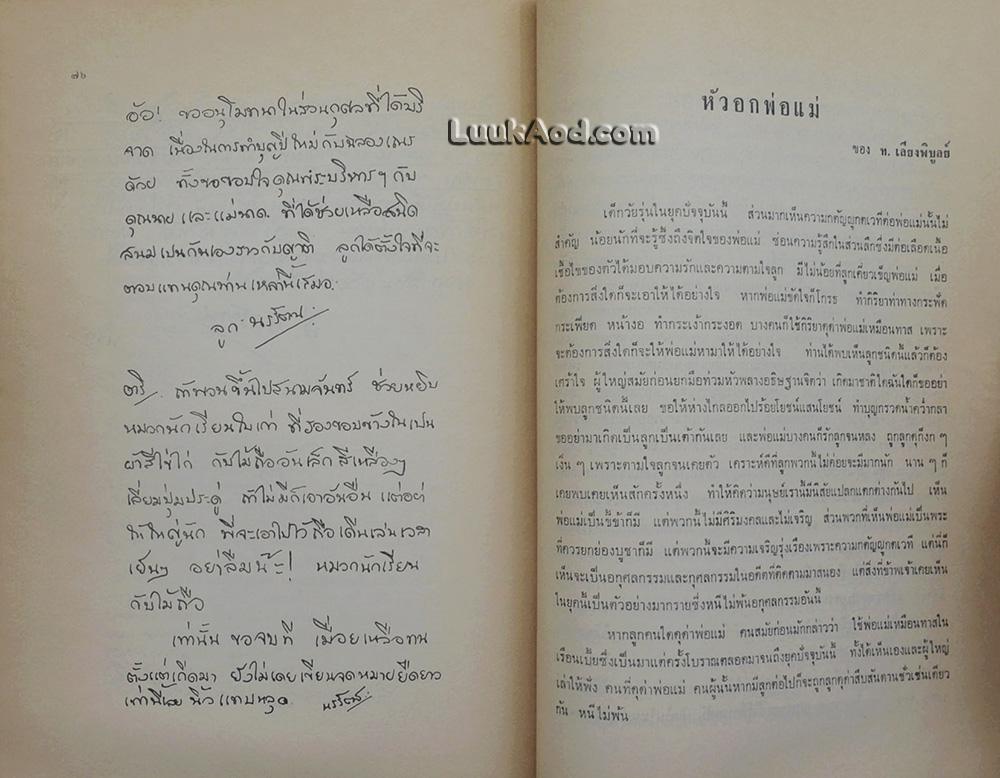 ๗๖
อ้อ! ขออนุโมทนาในส่วนกุศลที่ได้บริ
จาค เนื่องในการทำบุญปีใหม่กับฉลองเณร
ด้วย ทั้งขอขอบใจคุณพระบริหารฯ กับ
คุณนาย และแม่นาค ที่ได้ช่วยเหลือสนิด
สนมเปนกันเองราวกับญาติ ลูกได้ตั้งใจที่จะ
ตอบแทนคุณท่านเหล่านี้เสมอ.
ลูก
ตรี. ถ้าพวนขึ้นไปสนามจันทร์ ช่วยหยิบ
หมวกนักเรียนใบเก่า ที่รองขอบข้างในเปน
ผ้าสีไข่ไก่ กับไม้ถืออันเล็ก สีเหลืองๆ
เลี่ยมปุ่มประดู่ ถ้าไม่มีก็เอาอันอื่น แต่อย่า
ให้ใหญ่นัก พี่จะเอาไปไว้ถือเดินเล่นเวลา
เย็นๆ อย่าลืมน๊ะ! หมวกนักเรียน
กับไม้ถือ
เท่านั้น ขอจบที เมื่อยเหลือทน
ตั้งแต่เกิดมา ยังไม่เคยเขียนจดหมายยืดยาว
เท่านี้เลย นิ้วแทบหลุด.
LuukAod.com
หัวอกพ่อแม่
ของ ท. เลียงพิบูลย์
เด็กวัยรุ่นในยุคปัจจุบันนี้ ส่วนมากเห็นความกตัญญูกตเวทีต่อพ่อแม่นั้นไม่
สำคัญ น้อยนักที่จะรู้ซึ้งถึงจิตใจของพ่อแม่ ซ่อนความรู้สึกในส่วนลึกซึ่งมีต่อเลือดเนื้อ
เชื้อไขของตัวได้มอบความรักและความตามใจลูก มีไม่น้อยที่ลูกเคี่ยวเข็ญพ่อแม่ เมื่อ
ต้องการสิ่งใดก็จะเอาให้ได้อย่างใจ หากพ่อแม่ขัดใจก็โกรธ ทำกิริยาท่าทางกระฟัด
กระเฟียด หน้างอ ทำกระเง้ากระงอด บางคนก็ใช้กิริยาดุด่าพ่อแม่เหมือนทาส เพราะ
จะต้องการสิ่งใดก็จะให้พ่อแม่หามาให้ได้อย่างใจ ท่านได้พบเห็นลูกชนิดนี้แล้วก็ต้อง
เศร้าใจ ผู้ใหญ่สมัยก่อนยกมือท่วมหัวพลางอธิษฐานจิตว่า เกิดมาชาติใดฉันใดก็ขออย่า
ให้พบลูกชนิดนี้เลย ขอให้ห่างไกลออกไปร้อยโยชน์แสนโยชน์ ทำบุญกรวดน้ำคว่ำกลา
ขออย่ามาเกิดเป็นลูกเป็นเต้ากันเลย และพ่อแม่บางคนก็รักลูกจนหลง ถูกลูกดุก็งก ๆ
เงิ่น ๆ เพราะตามใจลูกจนเคยตัว เคราะห์ดีที่ลูกพวกนี้ไม่ค่อยจะมีมากนัก นาน ๆ ก็
เคยพบเคยเห็นสักครั้งหนึ่ง ทำให้คิดว่ามนุษย์เรานี้มีนิสัยแปลกแตกต่างกันไป เห็น
พ่อแม่เป็นขี้ข้าก็มี แต่พวกนี้ไม่มีศิริมงคลและไม่เจริญ ส่วนพวกที่เห็นพ่อแม่เป็นพระ
ที่ควรยกย่องบูชาก็มี แต่พวกนี้จะมีความเจริญรุ่งเรืองเพราะความกตัญญูกตเวที แต่นี่ก็
เห็นจะเป็นอกุศลกรรมและกุศลกรรมในอดีตที่ติดตามมาสนอง แต่สิ่งที่ข้าพเจ้าเคยเห็น
ในยุคนี้เป็นตัวอย่างมากรายซึ่งหนีไม่พ้นอกุศลกรรมอันนี้
หากลูกคนใดดุด่าพ่อแม่ คนสมัยก่อนมักกล่าวว่า ใช้พ่อแม่เหมือนทาสใน
เรือนเบี้ยซึ่งเป็นมาแต่ครั้งโบราณตลอดมาจนถึงยุคปัจจุบันนี้ ทั้งได้เห็นเองและผู้ใหญ่
เล่าให้ฟัง คนที่ดุด่าพ่อแม่ คนผู้นั้นหากมีลูกต่อไปก็จะถูกลูกดุด่าสืบสันดานชั่วเช่นเดียว
กัน หนีไม่พ้น